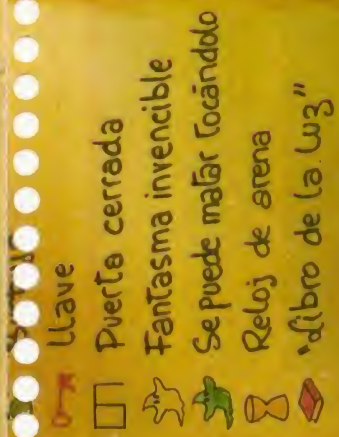 Llave
Puerta cerrada
Fantasma invencible
Se puede matar tocándolo
Reloj de arena
"Libro de la Luz"